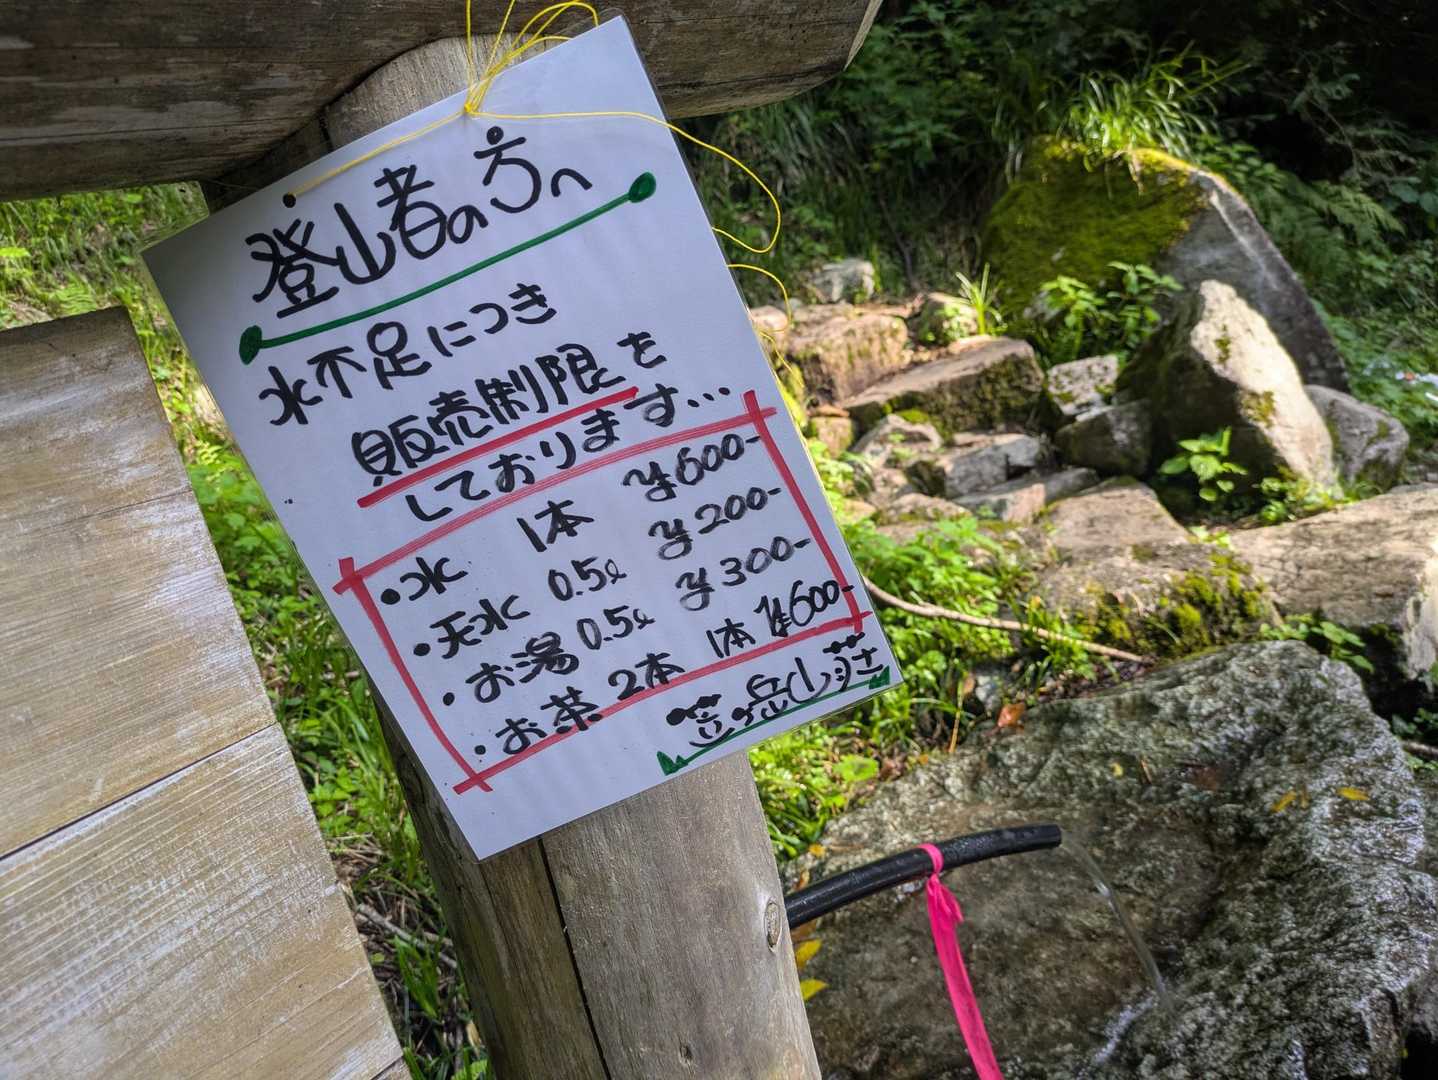 登山者の方へ
水不足につき
販売制限を
しております…
・水 1本 ¥600-
・天水 0.5ℓ ¥200-
・お湯 0.5ℓ ¥300-
・お茶 2本 1本 ¥600-
笠ヶ岳山荘